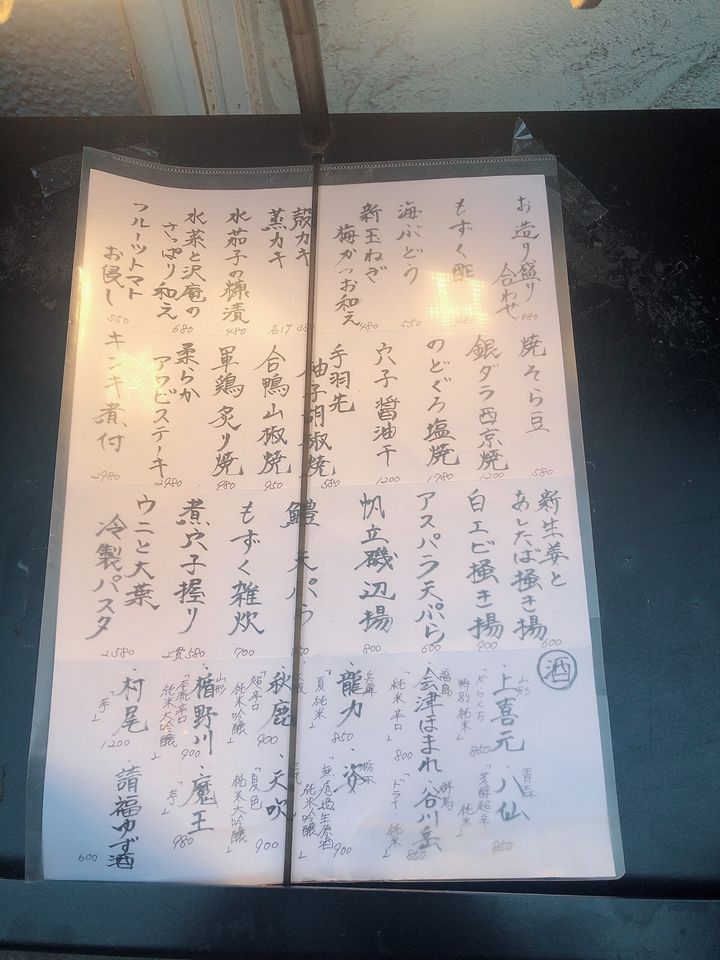 お造り盛り合わせ 880
もずく酢 480
海ぶどう 550
新玉ねぎ
梅かつお和え 480
殻カキ
蒸カキ
水茄子の糠漬 480
水菜と沢庵の
さっぱり和え 680
フルーツトマト
お浸し 550
焼そら豆 580
銀ダラ西京焼 1200
のどぐろ塩焼 1780
穴子醤油干 1200
手羽先
柚子胡椒焼 580
合鴨山椒焼 950
軍鶏炙り焼 980
柔らか
アワビステーキ 2980
キンキ煮付 2980
新生姜と
あしたば掻き揚 600
白エビ掻き揚 900
アスパラ天ぷら 600
帆立磯辺揚 800
鱧天ぷら
もずく雑炊 900
煮穴子握り 2貫580
ウニと大葉
冷製パスタ 2580
酒
山形
・上喜元 850
「からくち
特別純米」
青森
・八仙 850
「芳醇超辛
純米」
福島
・会津ほまれ 800
「純米辛口」
群馬
・谷川岳 850
「ドライ
純米」
兵庫
・龍力 850
「夏純米」
栃木
・姿 900
「無濾過生原酒
純米吟醸」
・秋鹿 900
「超辛口
純米吟醸」
・天吹 900
「夏色
純米大吟醸」
山形
・楯野川 900
純米大吟醸」
・魔王 980
「芋」
・村尾 1200
「芋」
請福ゆず酒 600